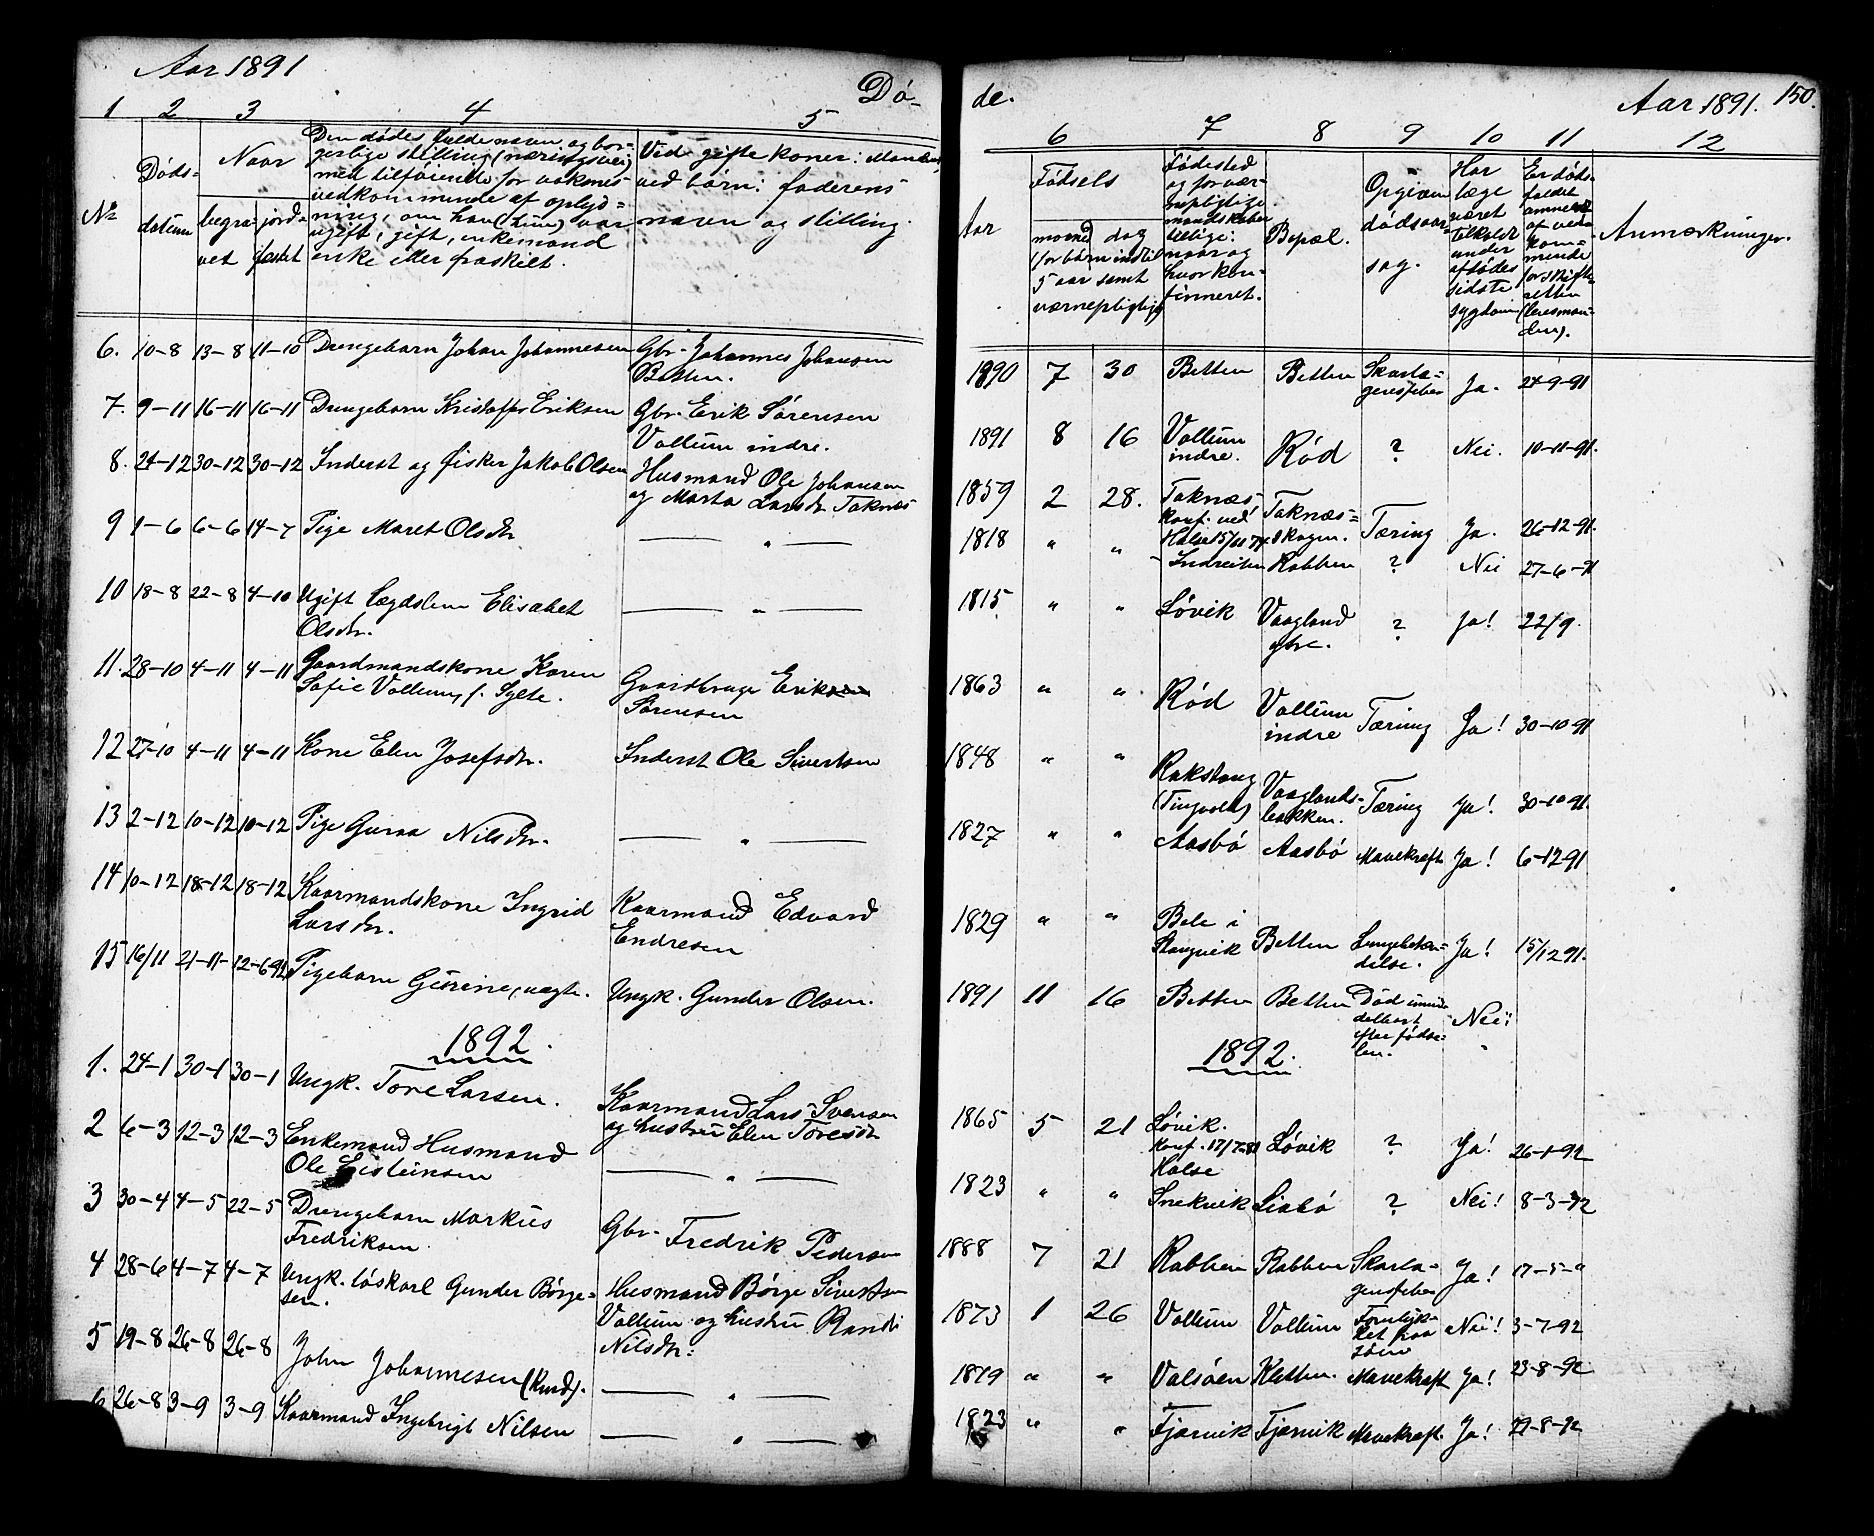 Aar 1891
Dö-
1 2 3 4 5
No
Døds-
datum
Naar
begra-
vet
jord-
fæstet
Den dødes fulde navn og bor-
gerlige stilling (næringsvei)
med tilføiende for voksnes
vedkommende af oplys-
ning, om han (hun) var
ugift, gift, enkemand
enke eller fraskilt.
Ved gifte koner: Mandens,
ved børn: faderens
navn og stilling.
6. 10-8 13-8 11-10 Drengebarn Johan Johannesen Gbr. Johannes Johansen
Betten.
7. 9-11 16-11 16-11 Drengebarn Kristoffer Eriksen Gbr. Erik Sørensen
Valtum indre.
8. 24-12 30-12 30-12 Inderst og fisker Jakob Olsen Husmand Ole Johansen
og Marta Larsdr. Taknes
9 1-6 6-6 14-7 Pige Maret Olsdr — „ —
10 18-8 22-8 4-10 Ugift Lægdslem Elisabet — „ —
Olsdr.
11. 28-10 4-11 4-11 Gaardmandskone Karen
Sofie Valtum, f. Sylte. Gaardbruger Erik
Sørensen
12 27-10 4-11 4-11 Kone Elen Josefsdr. Inderst Ole Sivertsen
13 2-12 10-12 10-12 Pige Guraa Nilsdtr. — „ —
14 10-12 18-12 18-12 Kaarmandskone Ingrid
Larsdr. Kaarmand Edvard
Endresen
15 16/11 21-11 12-6 92 Pigebarn Gurine, uægte. Ungk. Gunder Olsen.
1892.
1. 24-1 30-1 30-1 Ungk. Tore Larsen. Kaarmand Lars Svensen
og hustru Elen Toresdr
2 6-3 12-3 12-3 Enkemand Husmand
Ole Eisteinsen — „ —
3 30-4 4-5 22-5 Drengebarn Markus
Fredriksen. Gbr. Fredrik Pedersen
4 28-6 4-7 4-7 Ungk. løskarl Gunder Børge-
sen. Husmand Børge Sivertsen
Valtum og hustru Randi
Nilsdr.
5 19-8 26-8 26-8 John Johannesen (Kind). — „ —
6 26-8 3-9 3-9 Kaarmand Ingebrigt Nilsen — „ —
de.
Aar 1891. 150.
6 7 8 9 10 11 12
Aar
Fødsels
maaned dag
(for børn indtil
5 aar samt
værnepligtige)
Fødested
og for vær-
nepligtige
mandskaber
tillige:
naar og
hvor kon-
firmeret.
Bopæl.
Opgiven
dødsaar-
sag.
Har
læge
været
tilkaldt
under
afdødes
sidste
sygdom
Er døds-
faldet
anmeldt
af ved-
kom-
mende
for skifte-
retten
(lensman-
den).
Anmærkninger.
1890 7 30 Betten Betten Skarla-
gensfeber Ja. 24-9-91
1891 8 16 Valtum
indre. Rød ? Nei. 10-11-91.
1859 2 28. Taknæs
konf. ved
Halse 15/11 74 Taknæs-
skogen. Tæring Ja. 26-12-91.
1818 „ „ Indreiten Rabben ? Nei 27-6-91
1815 „ „ Løvik Vaagland
ytre. ? Ja! 22/9.
1863 „ „ Rød Valtum
indre Tæring Ja! 30-10-91
1848 „ „ Rakstang
(Tingvold) Vaaglands-
bakken. Tæring Ja! 30-10 91.
1827 „ „ Aasbø Aasbø Mavekræft Ja! 6-12 91
1829 „ „ Bele i
Stangvik Betten Lungebeten-
delse. Ja! 15/12 91.
1891 11 16 Betten Betten Død umid-
delbart
efter fødse-
len. Nei!
1892.
1865 5 21 Løvik.
Konf. 17/7-81
Halse Løvik ? Ja! 26-1-92
1823 „ „ Snekvik Liabø ? Nei! 8-3-92
1888 7 21 Rabben Rabben Skarla-
gensfeber Ja! 17-5-„
1873 1 26 Valtum Valtum Forulyk-
ket paa
søen Nei! 3-7-92
1879 „ „ Valsøen Kletten. Mavekræft Ja! 23-8-92
1823 „ „ Fjærvik Fjærvik Mavekræft. Ja! 29-8-92